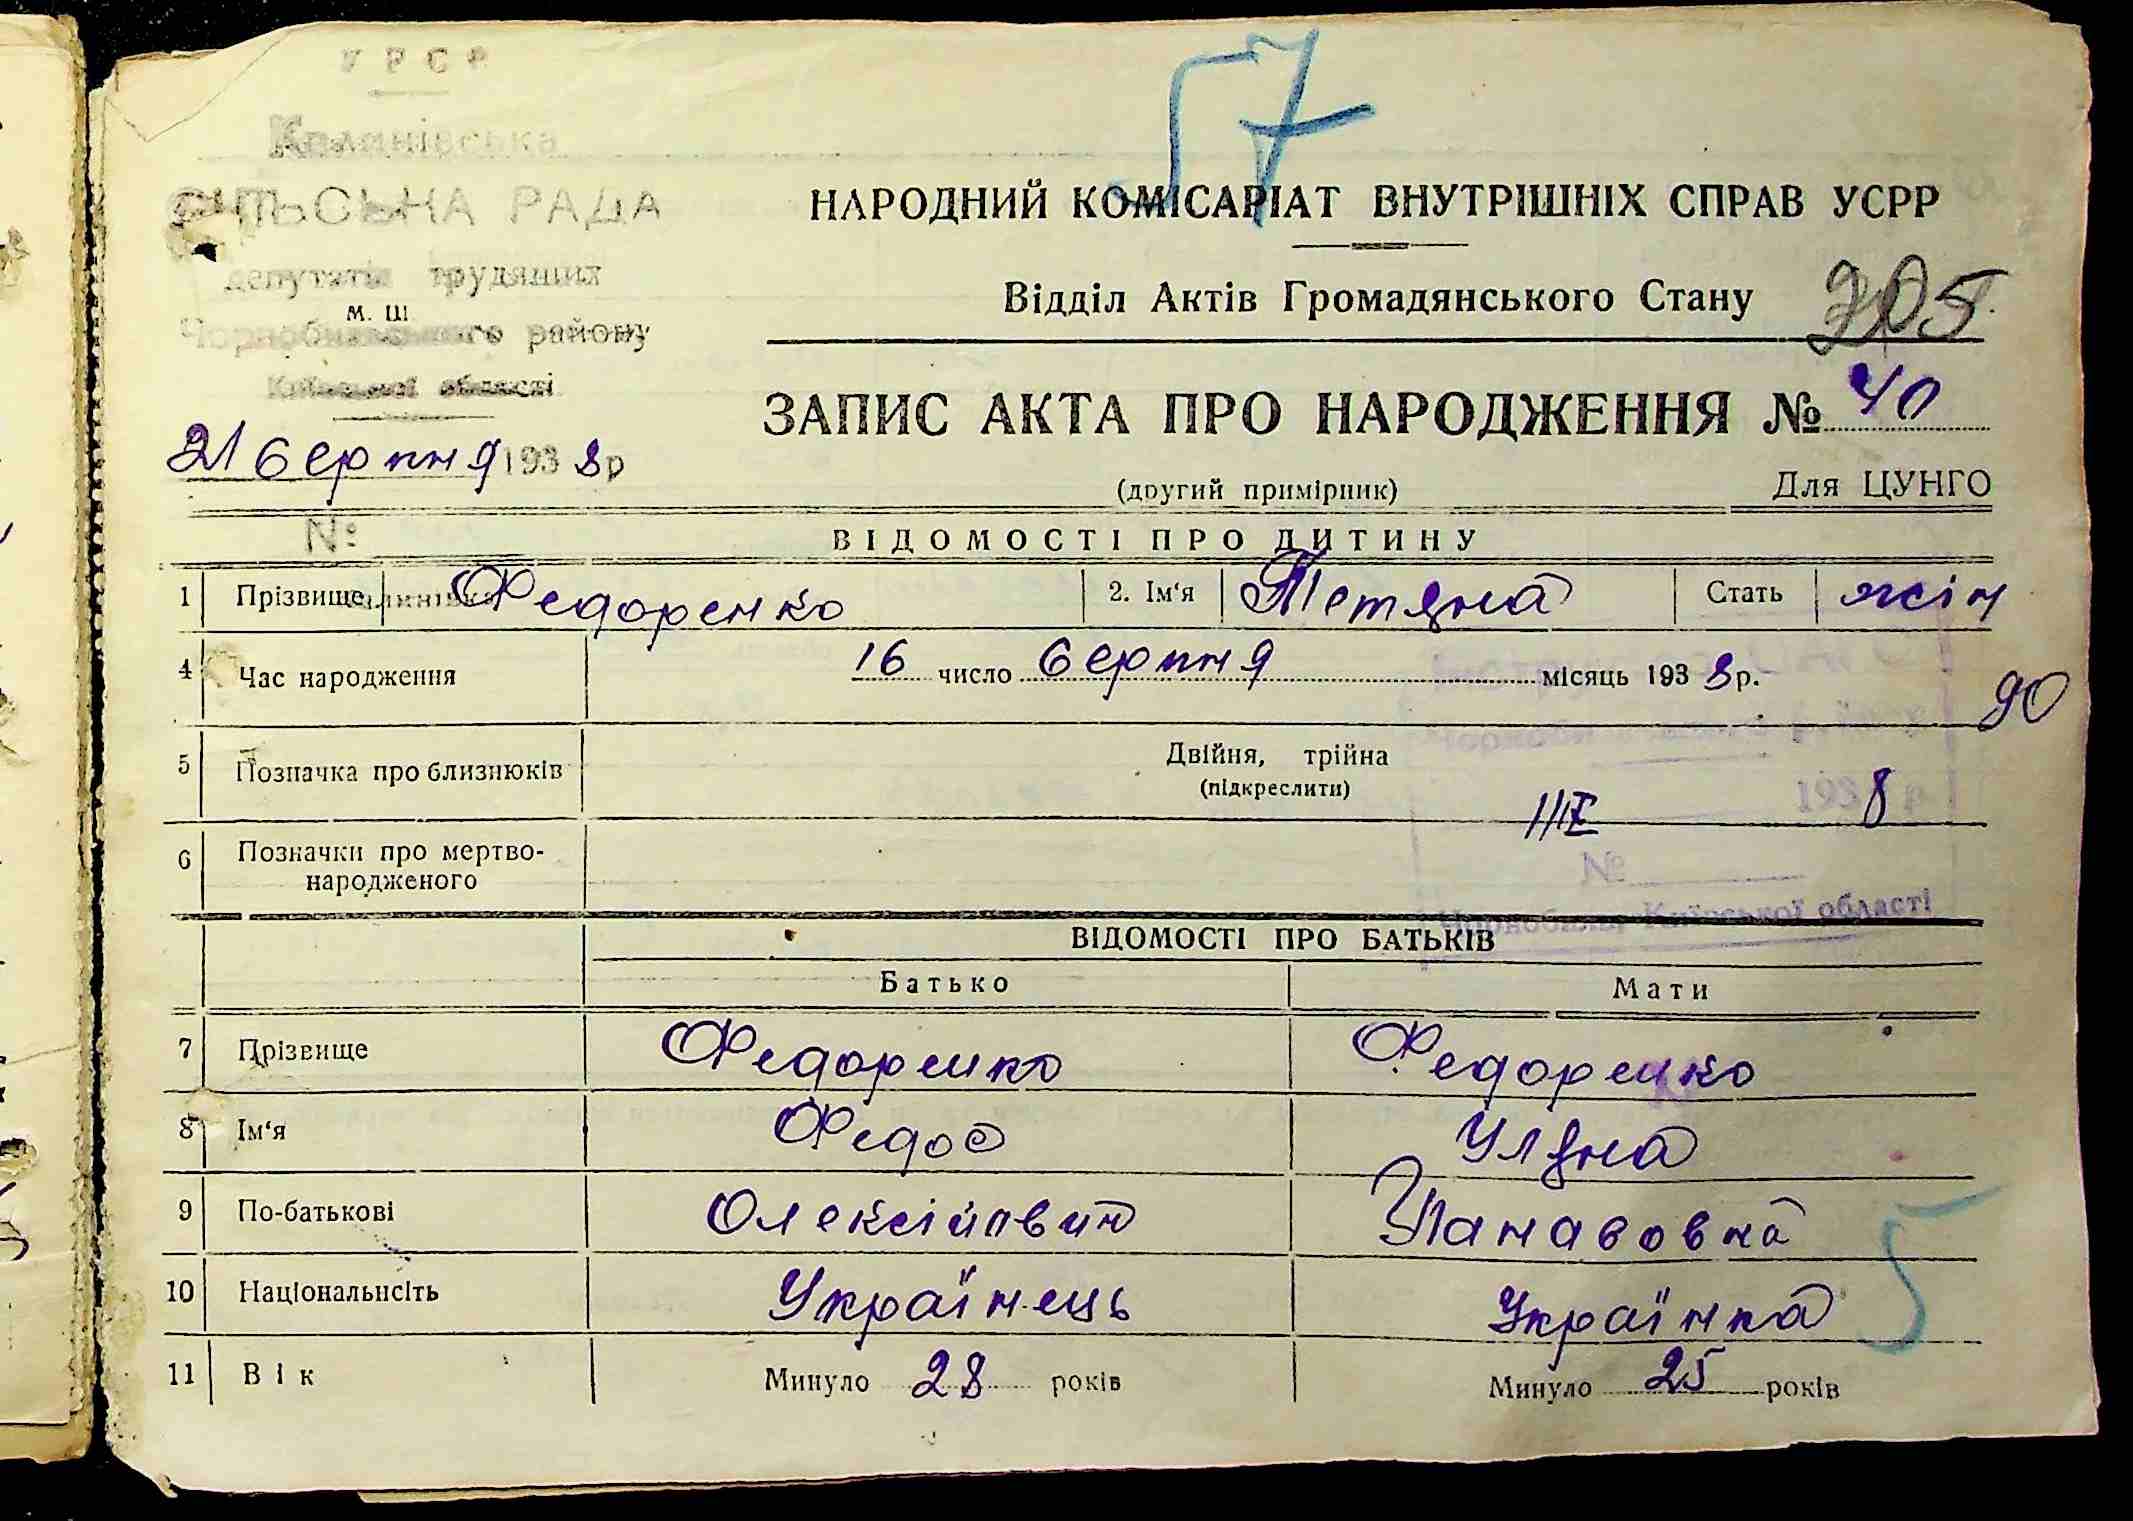 У Р С Р
57
Калинівська
СІЛЬСЬКА РАДА
НАРОДНИЙ КОМІСАРІАТ ВНУТРІШНІХ СПРАВ УСРР
депутатів трудящих
м. ш
Чорнобильського району
Відділ Актів Громадянського Стану
205
Київської області
ЗАПИС АКТА ПРО НАРОДЖЕННЯ № 40
21 Серпня 1938 р
(другий примірник) Для ЦУНГО
№
ВІДОМОСТІ ПРО ДИТИНУ
1 Прізвище Федоренко 2. Ім‘я Тетяна Стать жін
4 Час народження 16 число Серпня місяць 1938 р.
90
5 Позначка про близнюків Двійня, трійна
(підкреслити)
193 8 р
6 Позначки про мертво-
народженого
№
Чорнобиль, Київської області
ВІДОМОСТІ ПРО БАТЬКІВ
Батько Мати
7 Прізвище Федоренко Федоренко
8 Ім‘я Федос Уляна
9 По-батькові Олексійович Панасовна
5
10 Національнсіть Українець Українка
11 Вік Минуло 28 років Минуло 25 років